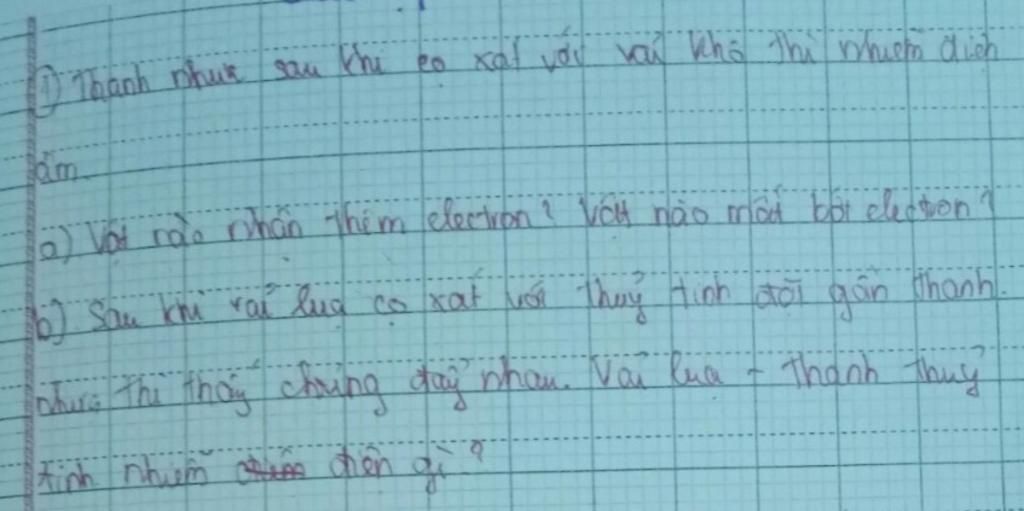 ① Thanh nhựa sau khi cọ xát với vải khô thì nhiễm điện
âm.
a) Vật nào nhận thêm electron? Vật nào mất bớt electron?
b) Sau khi vải lụa cọ xát với thuỷ tinh rồi gần thanh
nhựa thì thấy chúng đẩy nhau. Vải lụa + thanh thuỷ
tinh nhiễm điện gì?